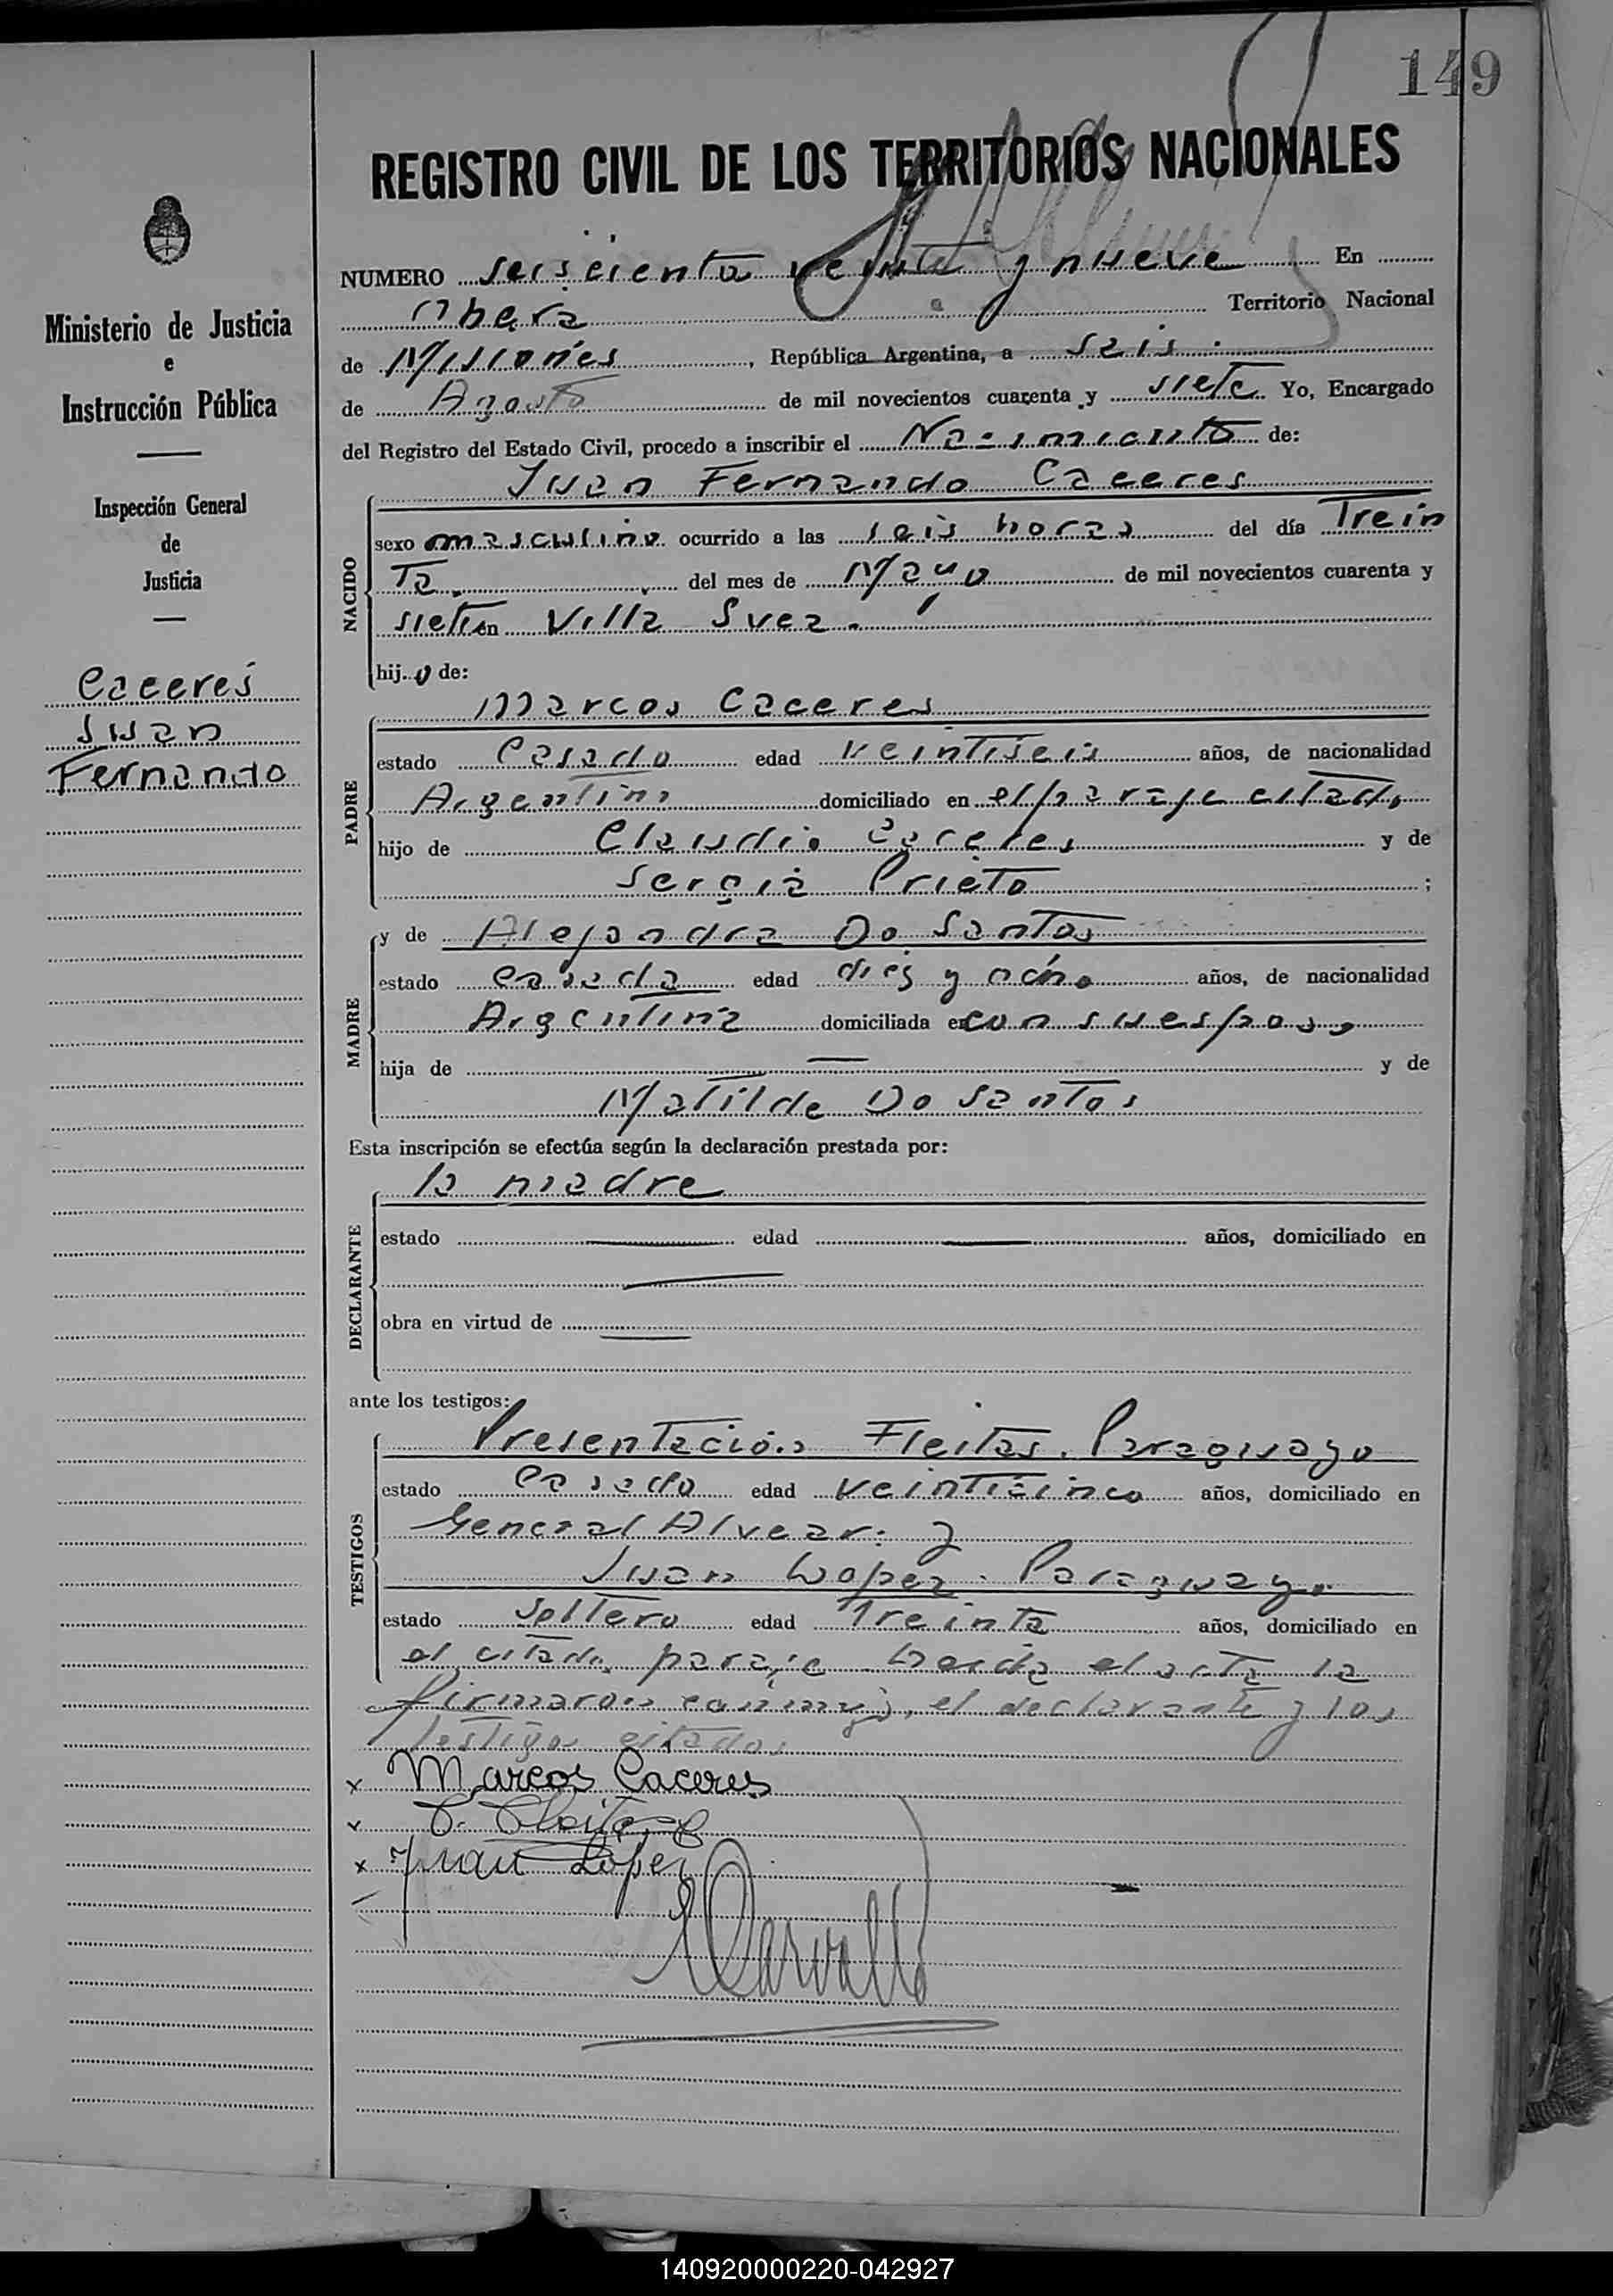 149
REGISTRO CIVIL DE LOS TERRITORIOS NACIONALES
NUMERO seiscienta veinte y nueve En
Obera Territorio Nacional
de Misiones, República Argentina, a seis.
de Agosto de mil novecientos cuarenta y siete Yo, Encargado
del Registro del Estado Civil, procedo a inscribir el Nacimiento de:
Juan Fernando Caceres
NACIDO
sexo masculino ocurrido a las seis horas del día Trein
Ta. del mes de Mayo de mil novecientos cuarenta y
siete en Villa Svea.
hijo de:
Marcos Caceres
PADRE
estado Casado edad veintiseis años, de nacionalidad
Argentino domiciliado en el paraje citado
hijo de Claudio Caceres y de
Sergia Prieto ;
y de Alejandra Do Santos
MADRE
estado casada edad dies y ocho años, de nacionalidad
Argentina domiciliada en con su esposo
hija de — y de
Matilde Do Santos
Esta inscripción se efectúa según la declaración prestada por:
la madre
DECLARANTE
estado — edad — años, domiciliado en
—
obra en virtud de —
ante los testigos:
Presentación Fleitas. Paraguayo
TESTIGOS
estado casado edad veinticinco años, domiciliado en
General Alvear. y
Juan Lopez. Paraguayo
estado soltero edad Treinta años, domiciliado en
el citado paraje Leida el acta la
firmaron conmigo, el declarante y los
testigos citados
x Marcos Caceres
x P. Fleitas
x Juan Lopez
Ministerio de Justicia
e
Instrucción Pública
Inspección General
de
Justicia
Caceres
Juan
Fernando
140920000220-042927